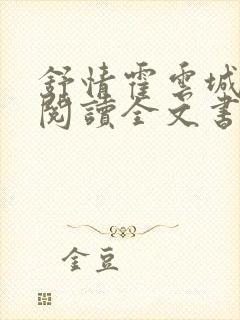 舒情霍雲城
閱讀全文書
金豆